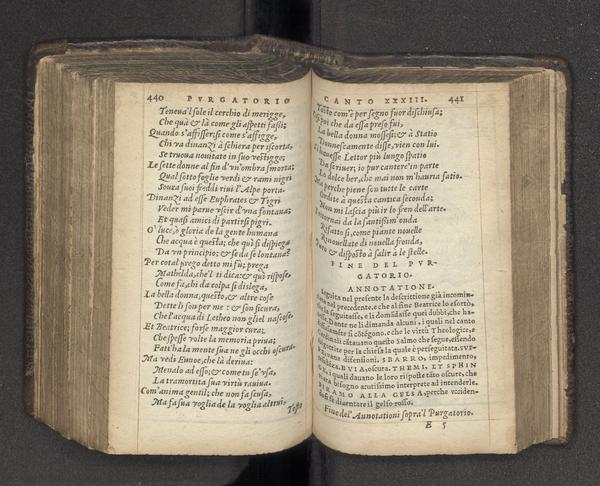 440 PVRGATORIO
Teneua'l sole il cerchio di merigge,
Che quà & là come gli aspetti fassi;
Quando s'affissersi come s'affigge,
Chi va dinanzi à schiera per iscorta,
Se truoua nouitate in suo vestigge;
Le sette donne al fin d'un'ombra smorta;
Qual sotto foglie verdi & rami nigri
Soura suoi freddi riui l'Alpe porta.
Dinanzi ad esse Euphrates & Tigri
Veder mi parue vscir d'una fontana;
Et quasi amici dipartirsi pigri.
O' luce, ò gloria de la gente humana
Che acqua è questa; che quì si dispiega
Da vn principio; & se da se lontana?
Per cotal prego detto mi fù; prega
Mathilda, che'l ti dica: & quì rispose,
Come fa, chi da colpa si dislega,
La bella donna, questo, & altre cose
Dette li son per me: & son sicura,
Che l'acqua di Letheò non gliel nascose.
Et Beatrice; forse maggior cura;
Che spesse volte la memoria priua;
Fatt'ha la mente sua ne gli occhi oscura.
Ma vedi Eunoe, che là deriua:
Menalo ad esso; & come tu se' vsa,
La tramortita sua virtù rauiua.
Com'anima gentil; che non fa scusa,
Ma fa sua voglia de la voglia altrui,
Tosto
CANTO XXXIII. 441
Tosto com'è per segno fuor dischiusa;
Così poi che da essa preso fui,
La bella donna mossesi; & à Statio
Donnescamente disse, vien con lui.
S'i hauesse Lettor più lungo spatio
Da scriuer; io pur cantere'in parte
Lo dolce ber, che mai non m'hauria satio.
Ma perche piene son tutte le carte
Ordite à questa cantica seconda;
Non mi lascia più ir lo fren dell'arte.
I ritornai da la santissim'onda
Rifatto sì, come piante nouelle
Rinouellate di nouella fronda,
Puro & disposto à salir à le stelle.
FINE DEL PVR-
GATORIO.
ANNOTATIONE.
Seguita nel presente la descrittione già incomin-
nel precedente. e che al fine Beatrice lo esortò,
seguitasse, e li domãdasse quei dubbi, che ha-
Dante ne li dimanda alcuni, i quali nel canto
si cõtẽgono. e che le virtù Theologice, e
cardinali cãtauano questo Salmo che segue, essendo
per la chiesa la quale è perseguitata.
difensioni. SBARRO, impedimento,
BVIA, oscura. THEMI, ET SPHIN
i quali dauano le loro risposte tãto oscure, che
bisogno acutissimo interprete ad intenderle.
PIRAMO ALLA GELSA, perche vcciden-
dosi fè diuentare il gelso rosso.
Fine del' Annotationi sopra'l Purgatorio.
E 5